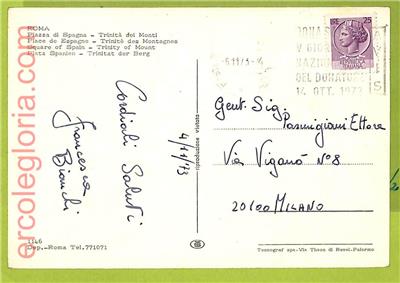 ROMA
Piazza di Spagna - Trinità dei Monti
Place de Espagne - Trinité des Montagnes
Square of Spain - Trinity of Mount
Platz Spanien - Trinitat der Berg
LIRE 25
DONA S
V GIOR
NAZION
DEL DONATOR
14 OTT. 1973
AVIS
Gent. Sig.
Parmigiani Ettore
Via Viganò N° 8
20100 MILANO
Cordiali Saluti
Francesca
Bianchi
4/11/73
riproduzione vietata
1146
Dep. - Roma Tel. 771071
Tecnograf spa - Via Thaon di Revel - Palermo
ercolegloria.com